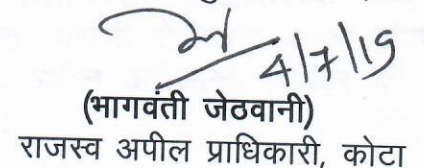 4/7/19
(भागवंती जेठवानी)
राजस्व अपील प्राधिकारी, कोटा